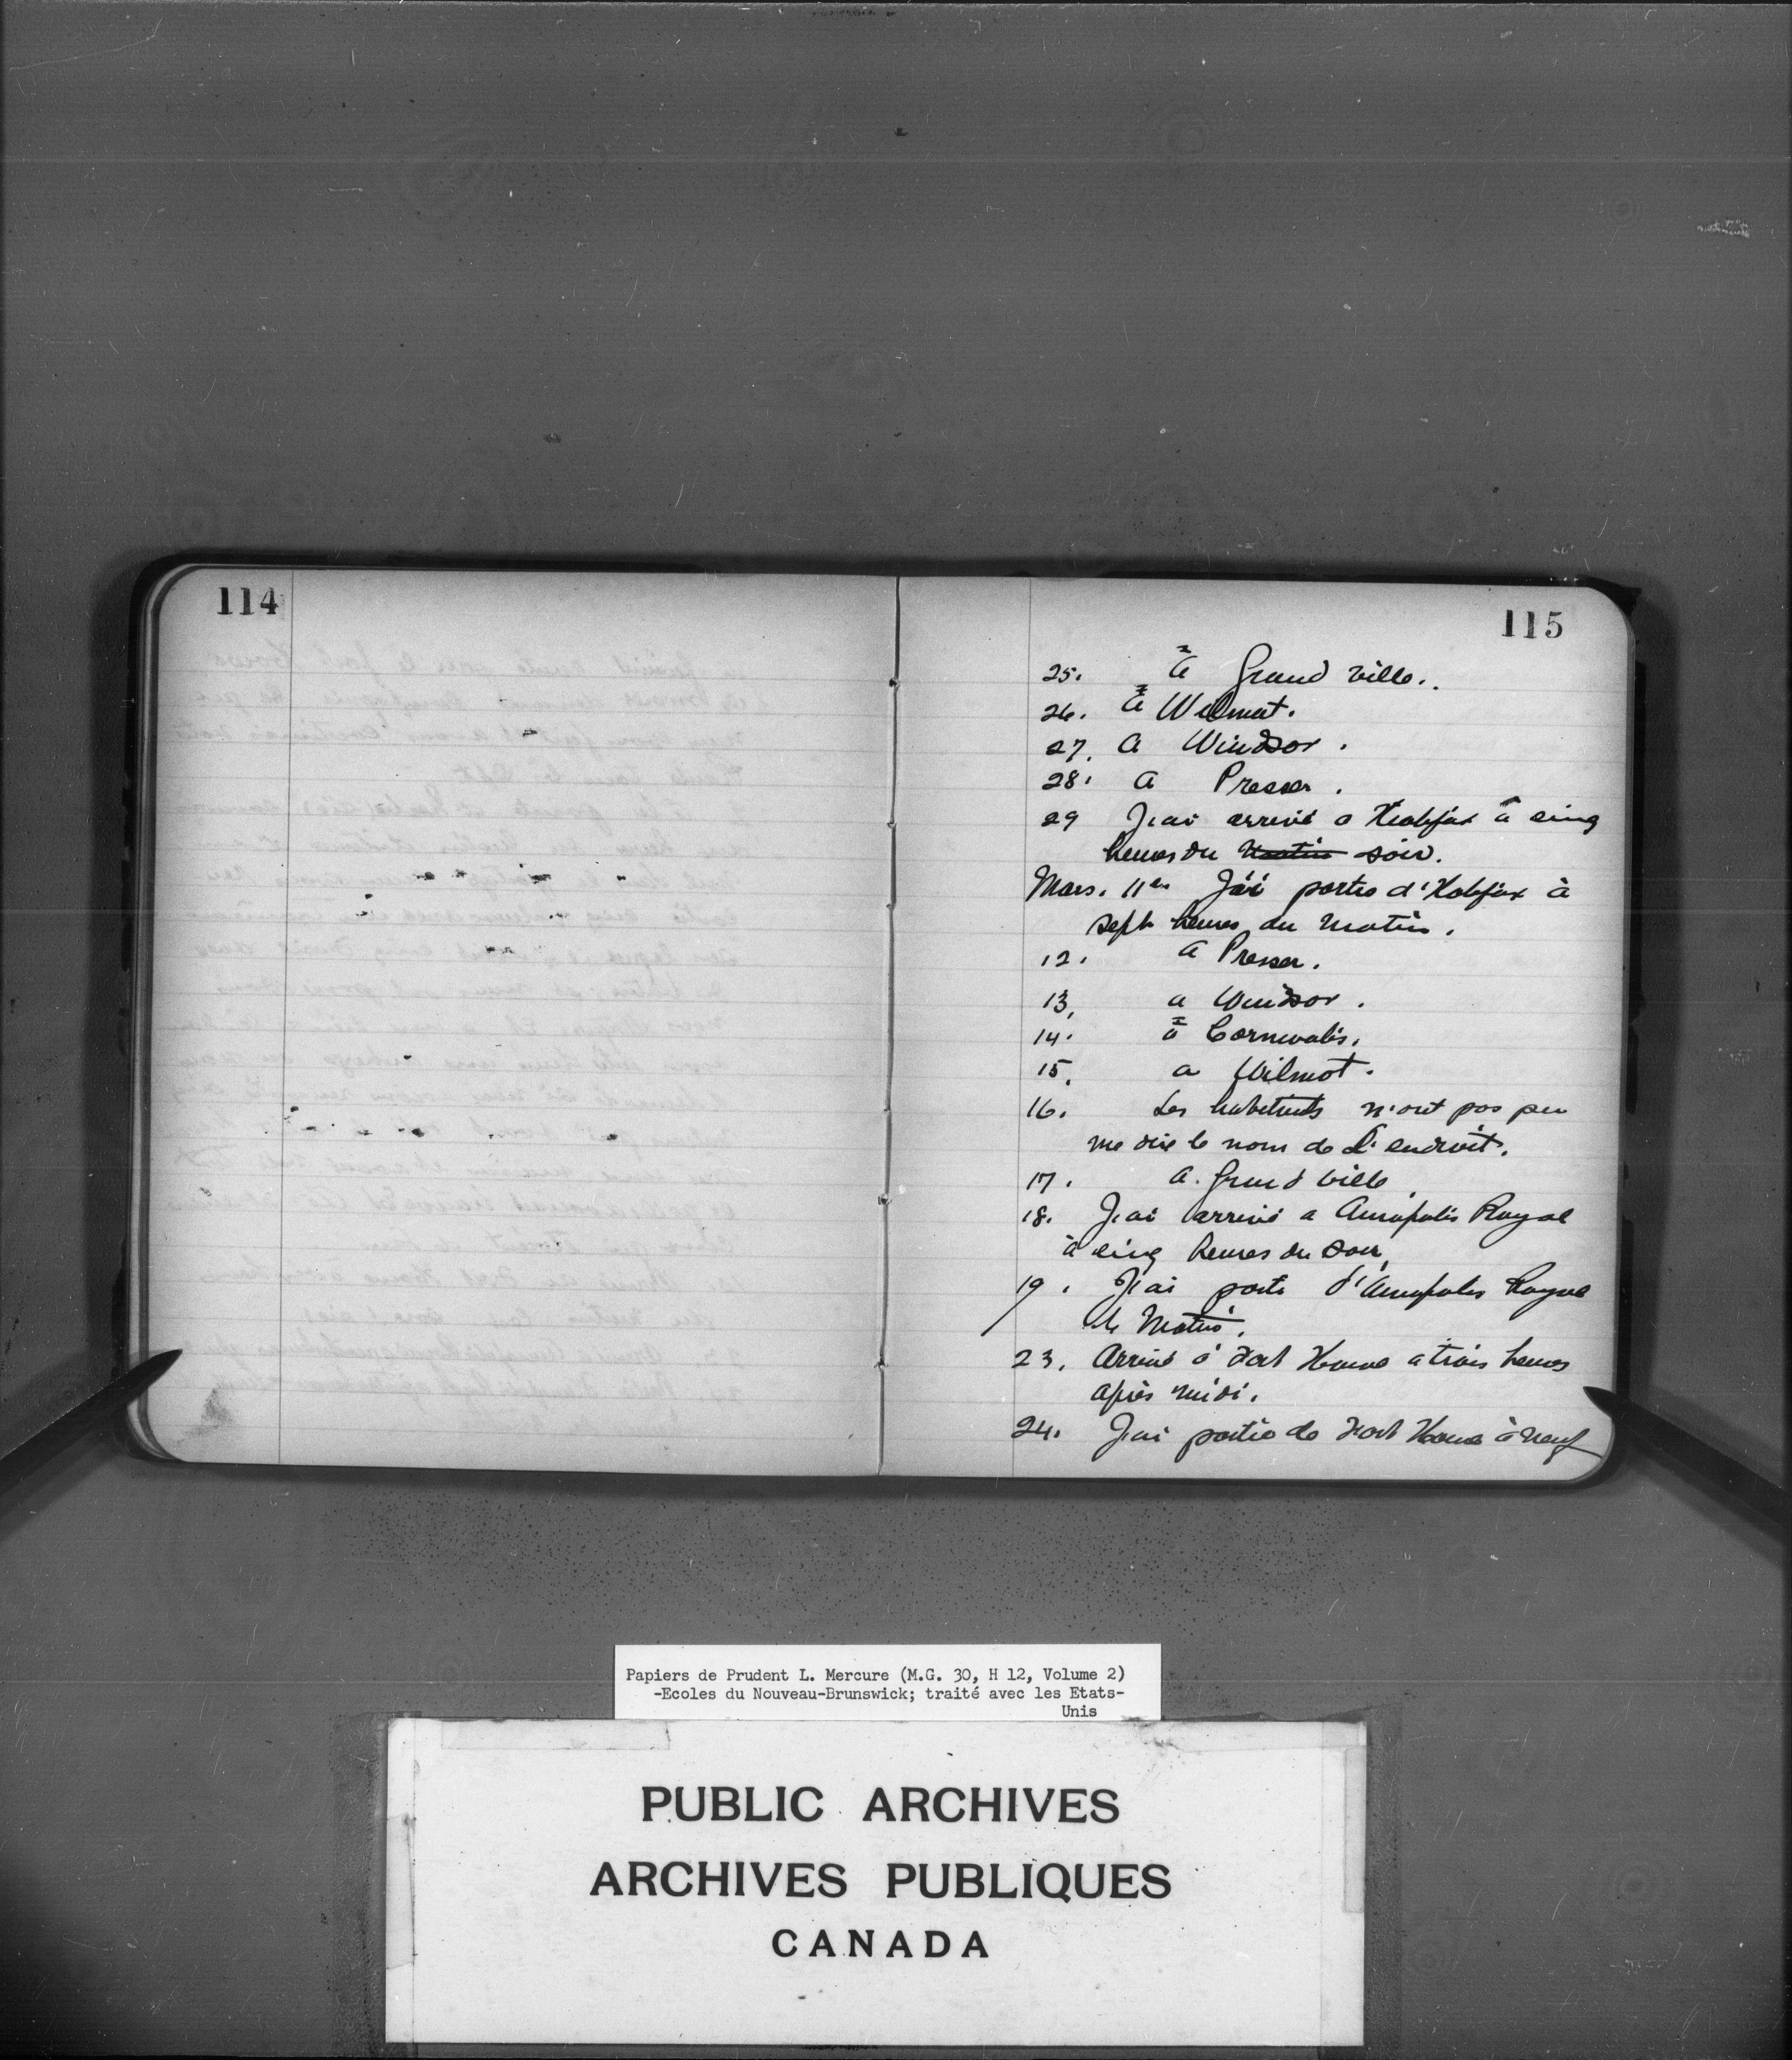 114
115
25. à Grand ville.
26. à Wilmut.
27. a Windsor.
28. a Presser.
29 J'ai arrivé a Halifax à cinq
heures du matin soir.
Mars. 11 J'ai partie d'Halifax à
sept heures du matin.
12. a Presser.
13, a Windsor.
14. à Cornwalis.
15. a Wilmot.
16. Les habitants n'ont pas peu
me dire le nom de L'endroit.
17. a. Grand ville
18. J'ai arrivé a Annapolis Royal
à cinq heures du soir,
19. J'ai parti d'Annapolis Royal
le Matin.
23. Arrivé à Fort Howe a trois heures
après midi.
24. J'ai partie de Fort Howe à neuf
Papiers de Prudent L. Mercure (M.G. 30, H 12, Volume 2)
-Ecoles du Nouveau-Brunswick; traité avec les Etats-
Unis
PUBLIC ARCHIVES
ARCHIVES PUBLIQUES
CANADA